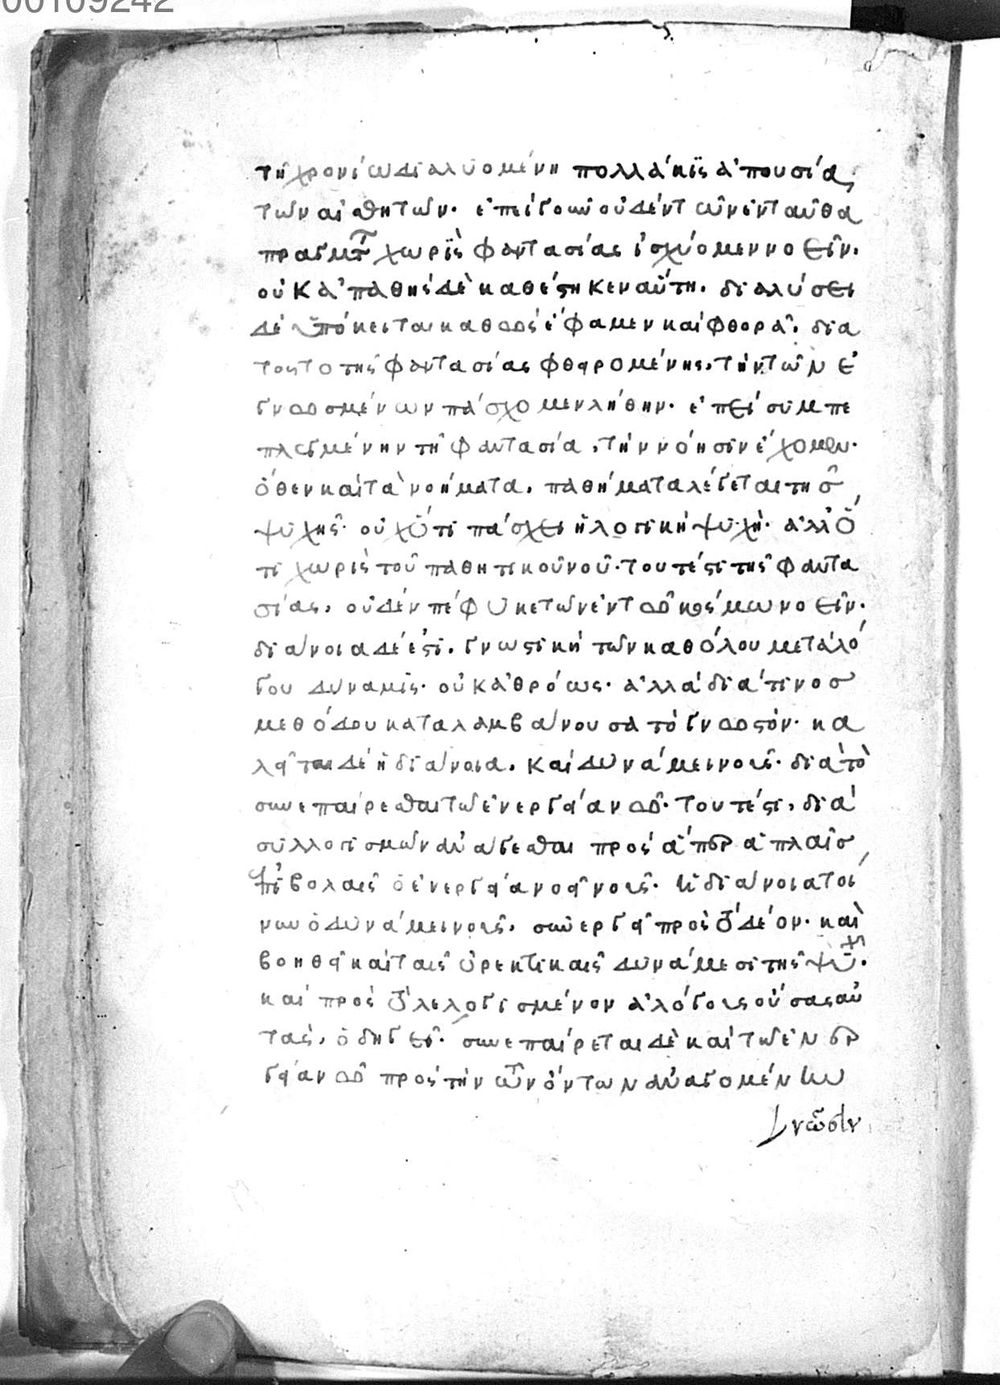 00109242
τῇ χρονίω διαλυομένη πολλάκις ἀπουσία
τῶν αἰσθητῶν· ἐπεὶ γοῦν οὐδὲν τῶν ἐνταῦθα
πραγμάτων χωρὶς φαντασίας ἰσχύομεν νοεῖν·
οὐκ ἀπαθὴς δὲ καθέστηκεν αὕτη· διαλύσει
δὲ ὑπόκειται καθὼς ἔφαμεν καὶ φθορᾶ· δια
τοῦτο τῆς φαντασίας φθειρομένης, τὴν τῶν ἐ
γνωσμένων πάσχομεν λήθην· ἐπεὶ συμπε
πλεγμένην τῆ φαντασία, τὴν νόησιν ἔχομεν·
ὅθεν καὶ τὰ νοήματα, παθήματα λέγεται τῆς
ψυχῆς· οὐχ ὅτι πάσχει ἡ λογικὴ ψυχὴ· ἀλλ' ὅ
τι χωρὶς τοῦ παθητικοῦ νοῦ· τουτέστι τῆς φαντα
σίας, οὐδὲν πέφυκε τῶν ἐν τῶ κόσμω νοεῖν·
διάνοια δέ ἐστι, γνωστικὴ τῶν καθόλου μετὰ λό
γου δύναμις· οὐκ ἀθρόως· ἀλλὰ διά τινος
μεθόδου καταλαμβάνουσα τὸ γνωστόν· κα
λεῖται δὲ ἡ διάνοια, καὶ δυνάμει νοῦς· διὰ τὸ
συνεπαίρεσθαι τῶ ἐνεργείαν νῶ· τουτέστι, διὰ
συλλογισμῶν ἀνάγεσθαι πρὸς ἅπερ ἁπλαῖς
ἐπιβολαῖς ὁ ἐνεργείαν οεῖ νοῦς· ἡ διάνοια τοί
νυν ὁ δυνάμει νοῦς, συνεργεῖ πρὸς τὸ δέον· καὶ
βοηθεῖ καὶ ταῖς ὀρεκτικαῖς δυνάμεσι τῆς ψυχῆς·
καὶ πρὸς τὸ λελογισμένον ἀλόγους οὔσας αὐ
τὰς, ὁδηγεῖ· συνεπαίρεται δὲ καὶ τῶ ἐνερ
γείαν νῶ πρὸς τὴν τῶν ὄντων ἀναγομένω
γνῶσιν